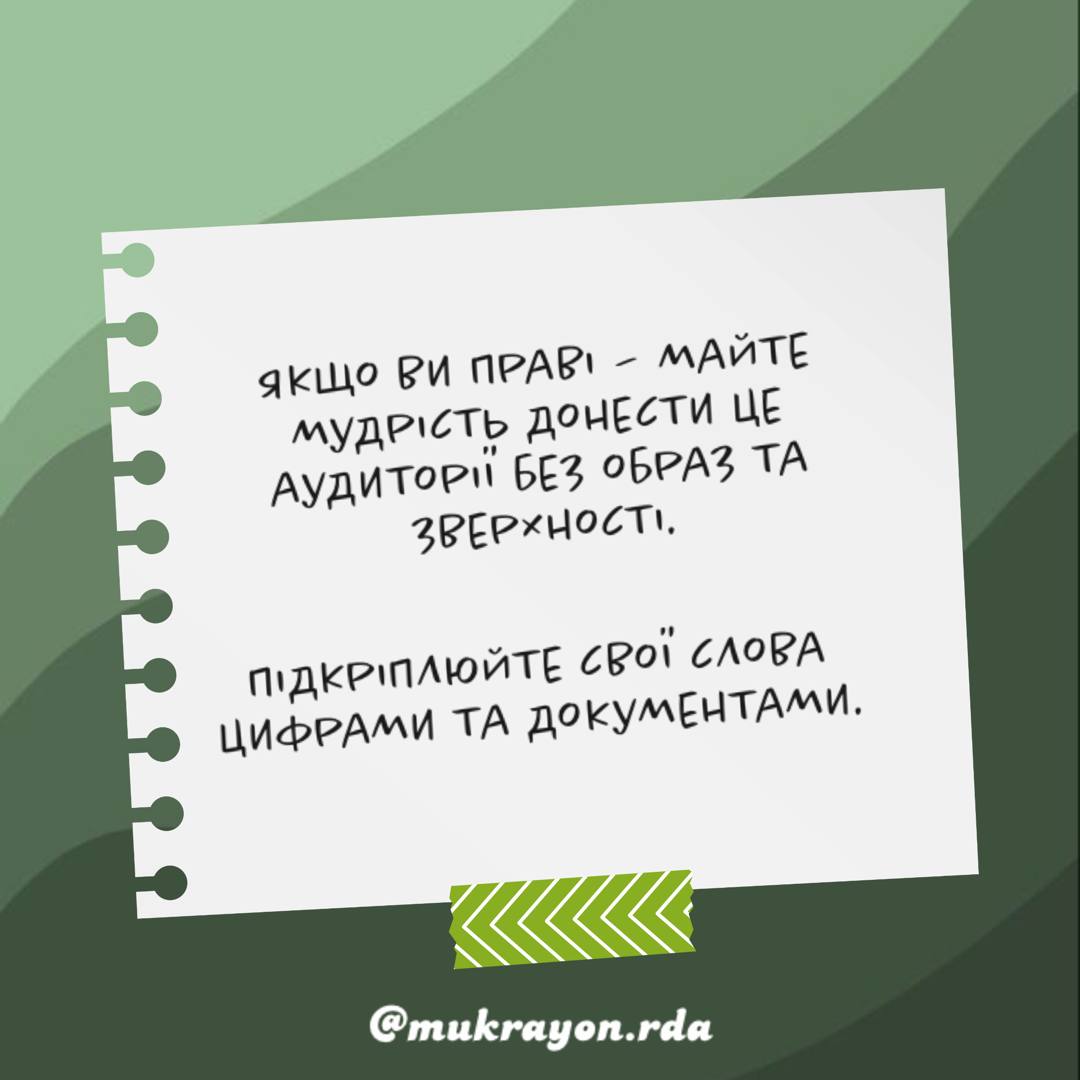 ЯКЩО ВИ ПРАВІ - МАЙТЕ
МУДРІСТЬ ДОНЕСТИ ЦЕ
АУДИТОРІЇ БЕЗ ОБРАЗ ТА
ЗВЕРХНОСТІ.
ПІДКРІПЛЮЙТЕ СВОЇ СЛОВА
ЦИФРАМИ ТА ДОКУМЕНТАМИ.
@mukrayon.rda